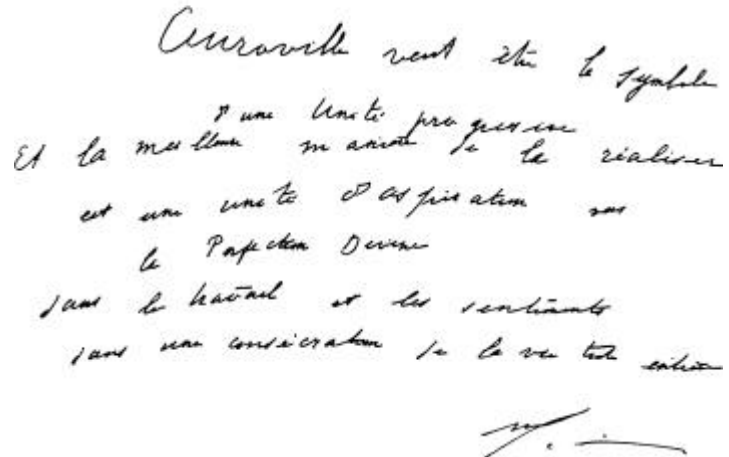 Auroville veut être le symbole
d'une Unité progressive
Et la meilleure manière de la réaliser
est une unité d'aspiration vers
la Perfection Divine
dans le travail et les sentiments
dans une consécration de la vie toute entière